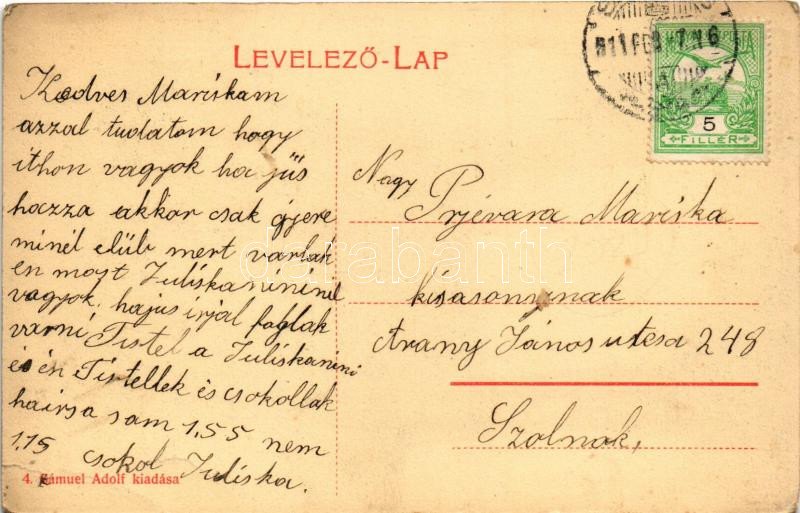 LEVELEZŐ-LAP
Kedves Mariskam
azzal tudatom hogy
ithon vagyok ha jüs
hazza akkor csak gyere
minél elüb mert varlak
én most Juliskanininél
vagyok. hajus irjál foglak
varni Tistel a Juliskanini
és én Tistellek és csokollak
hairsa sam 1,55 nem
1,15 csokol Juliska.
4. Sámuel Adolf kiadása
911 FEB 7 N 6
MAGYAR KIR. POSTA
5
FILLÉR
Nagy
Prjévara Mariska
kisasonynak
Arany János utcsa 248
Szolnok,
darabanth